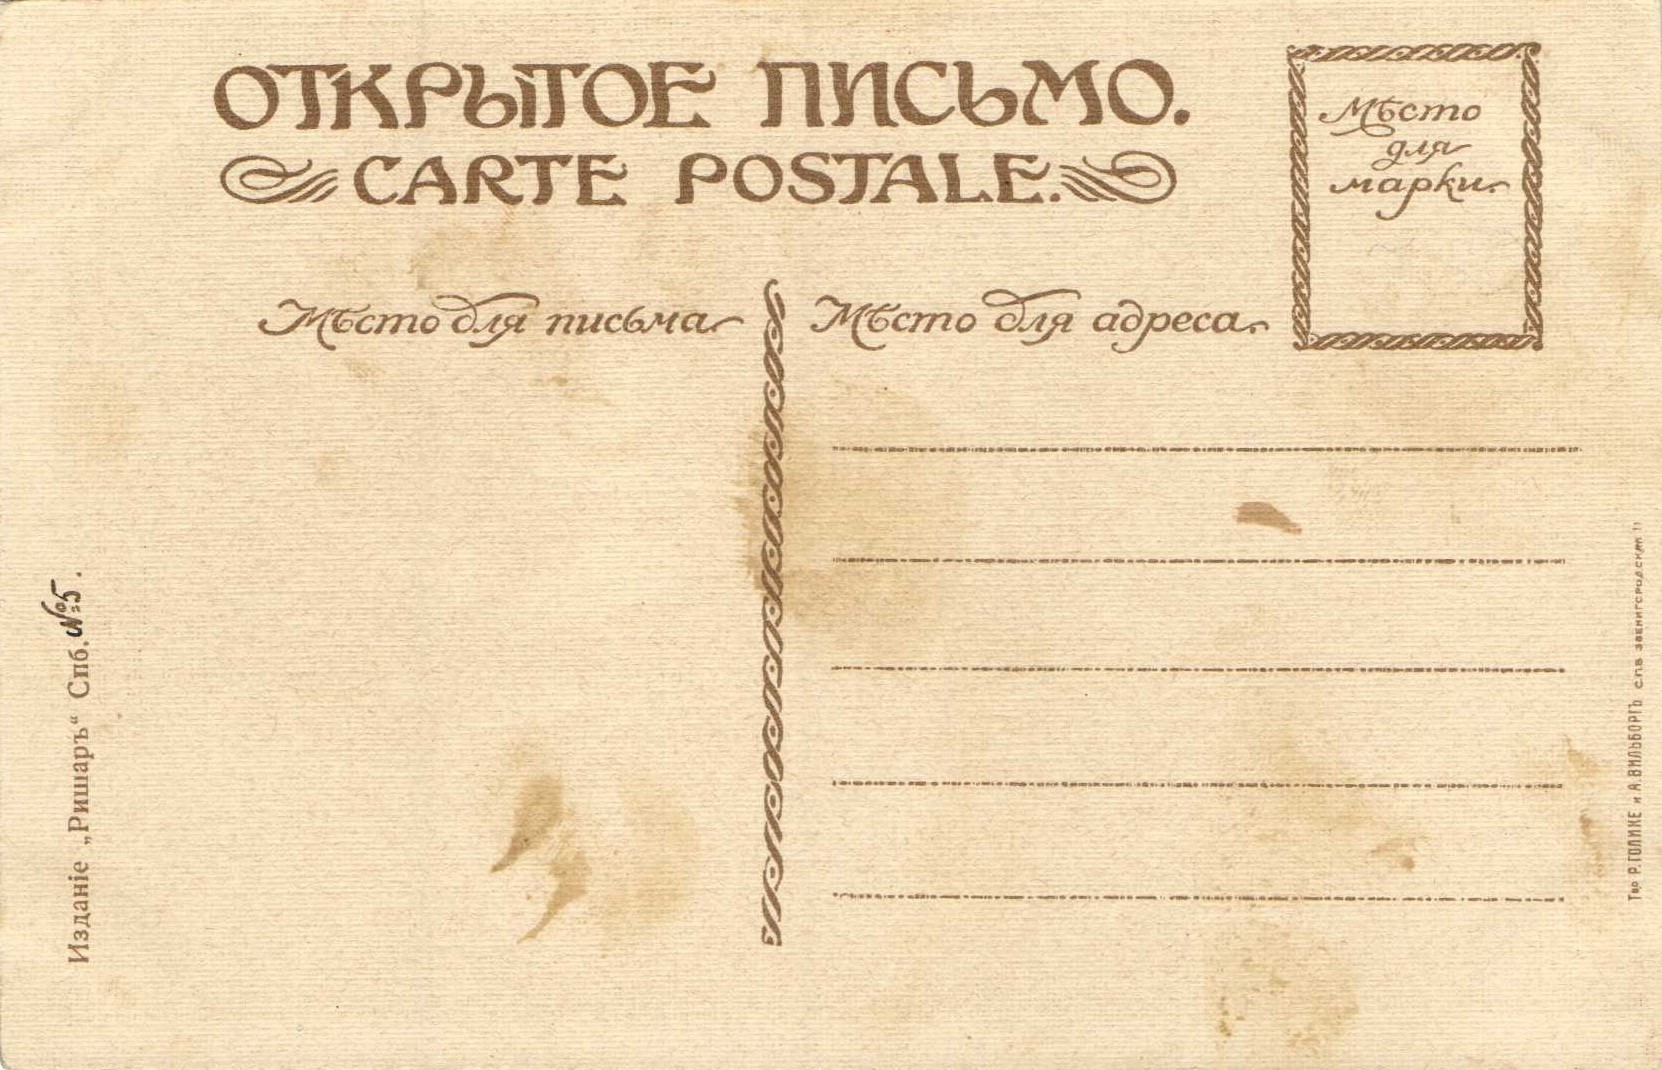 ОТКРЫТОЕ ПИСЬМО.
CARTE POSTALE.
Мѣсто
для
марки.
Мѣсто для письма.
Мѣсто для адреса.
Изданіе „Ришаръ“ Спб. №5.
Тво Р. ГОЛИКЕ и А. ВИЛЬБОРГЪ СПБ ЗВЕНИГОРОДСКАЯ 11